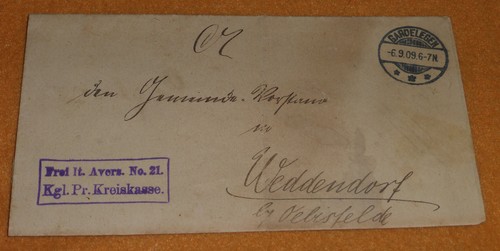 GARDELEGEN
-6.9.09.6-7N.
den Gemeinde-Vorstand
in
Weddendorf
by Oebisfelde
Frei lt. Avers. No. 21.
Kgl. Pr. Kreiskasse.